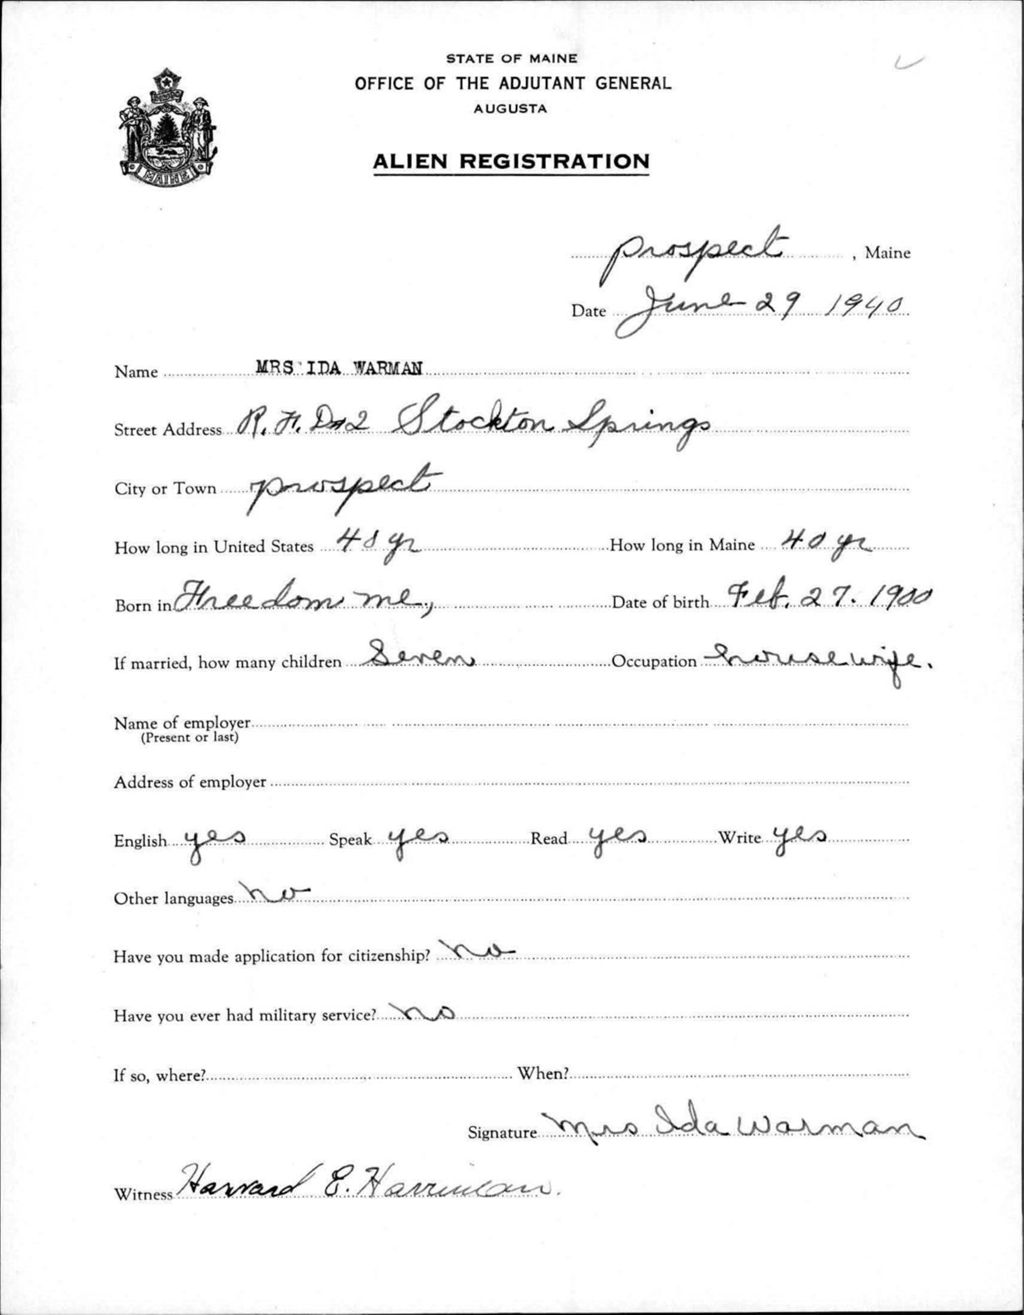 STATE OF MAINE
OFFICE OF THE ADJUTANT GENERAL
AUGUSTA
ALIEN REGISTRATION
MAINE
Prospect, Maine
Date June 29 1940
Name MRS IDA WARMAN
Street Address R. F. D #2 Stockton Springs
City or Town Prospect
How long in United States 40 yr How long in Maine 40 yr
Born in Freedom Me, Date of birth Feb. 27. 1900
If married, how many children Seven Occupation housewife.
Name of employer
(Present or last)
Address of employer
English yes Speak yes Read yes Write yes
Other languages no
Have you made application for citizenship? no
Have you ever had military service? no
If so, where? When?
Signature Mrs Ida Warman
Witness Harvard E. Harriman.